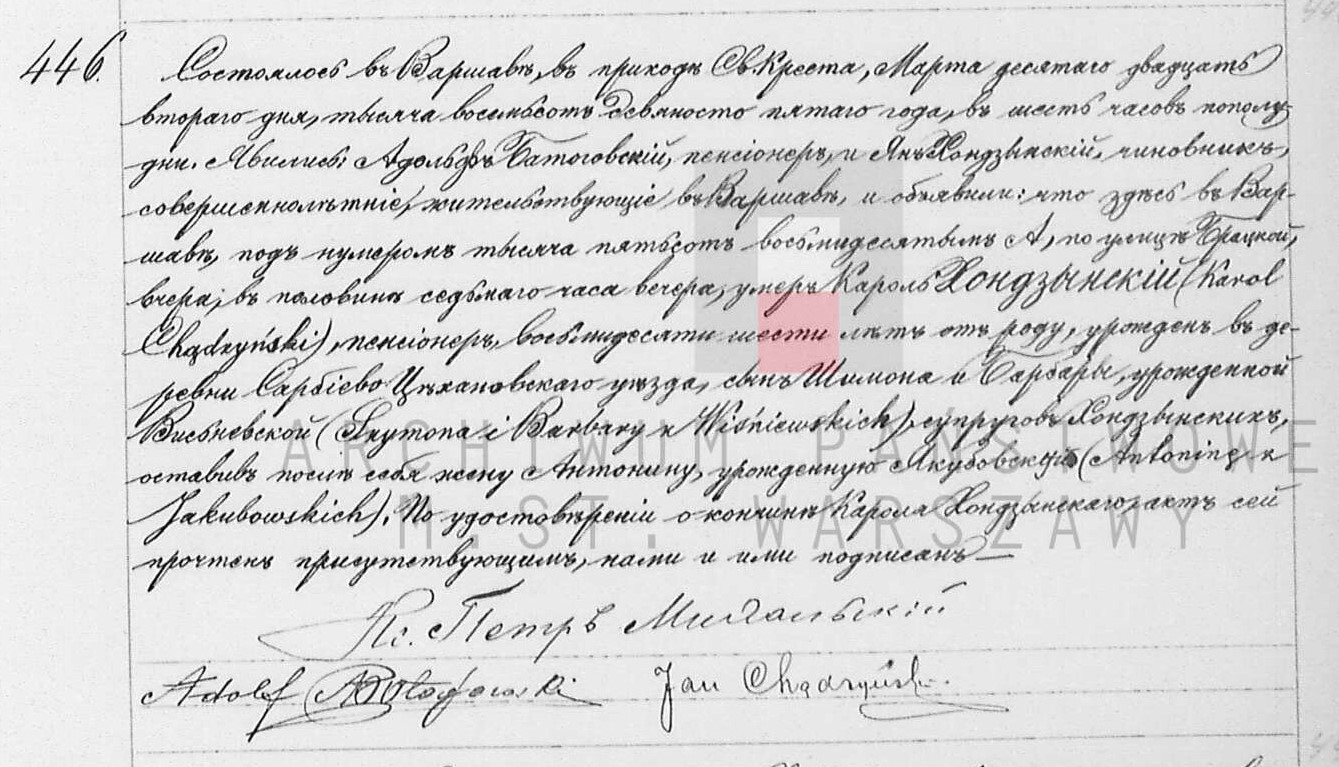 446.
Состоялось въ Варшавѣ, въ приходѣ Св. Креста, Марта десятаго двадцать
втораго дня, тысяча восемьсотъ девяносто пятаго года, въ шесть часовъ пополу-
дни. Явились: Адольфъ Батоговскій, пенсіонеръ, и Янъ Хондзынскій, чиновникъ,
совершеннолѣтніе, жительствующіе въ Варшавѣ, и объявили: что здѣсь въ Вар-
шавѣ, подъ нумеромъ тысяча пятьсотъ восьмидесятымъ А, по улицѣ Брацкой,
вчера, въ половинѣ седьмаго часа вечера, умеръ Кароль Хондзынскій (Karol
Chądzyński), пенсіонеръ, восьмидесяти шести лѣтъ отъ роду, урожденъ въ де-
ревни Сарбіево Цѣхановскаго уѣзда, сынъ Шимона и Барбары, урожденной
Висьневской (Szymona i Barbary z Wiśniewskich), супруговъ Хондзынскихъ,
оставивъ послѣ себя жену Антонину, урожденную Якубовскую (Antoninę z
Jakubowskich). По удостовѣреніи о кончинѣ Кароля Хондзынскаго, актъ сей
прочтенъ присутствующимъ, нами и ими подписанъ —
Кс. Петръ
Adolf Jan Chądzyński
ARCHIWUM PAŃSTWOWE
M.ST. WARSZAWY